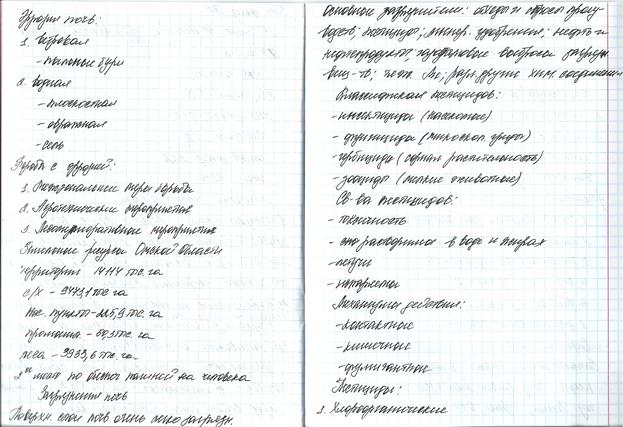 Эрозия почв:
1. Ветровая
- пыльные бури
2. Водная
- плоскостная
- овражная
- сель
Борьба с эрозией:
1. меры борьбы
2. Агротехнические мероприятия
3. Лесомелиоративные мероприятия
Земельные ресурсы Омской области
Территория 14114 тыс. га
с/х - 9473,1 тыс га
Нас. пункты - 225,9 тыс. га
промышл. - тыс. га
леса - 3933,6 тыс. га
2ое место по пашней на человека
Загрязнение почв
Поверхн. слои почв очень легко загрязн.
Основные загрязнители: отходы и отбросы
пестициды; минер. удобрения; нефть и
нефтепродукты, газодымовые выбросы загрязн.
вещ-тв; хим. соединения
Классификация пестицидов:
- инсектициды (насекомые)
- фунгициды (микроскоп. грибы)
- гербициды (сорная растительность)
- зооциды (мелкие животные)
Св-ва пестицидов:
- токсичность
- растворимы в воде и жирах
- летучи
-
Механизмы действия:
- контактные
- кишечные
- фумигантные
Пестициды:
1. Хлорорганические